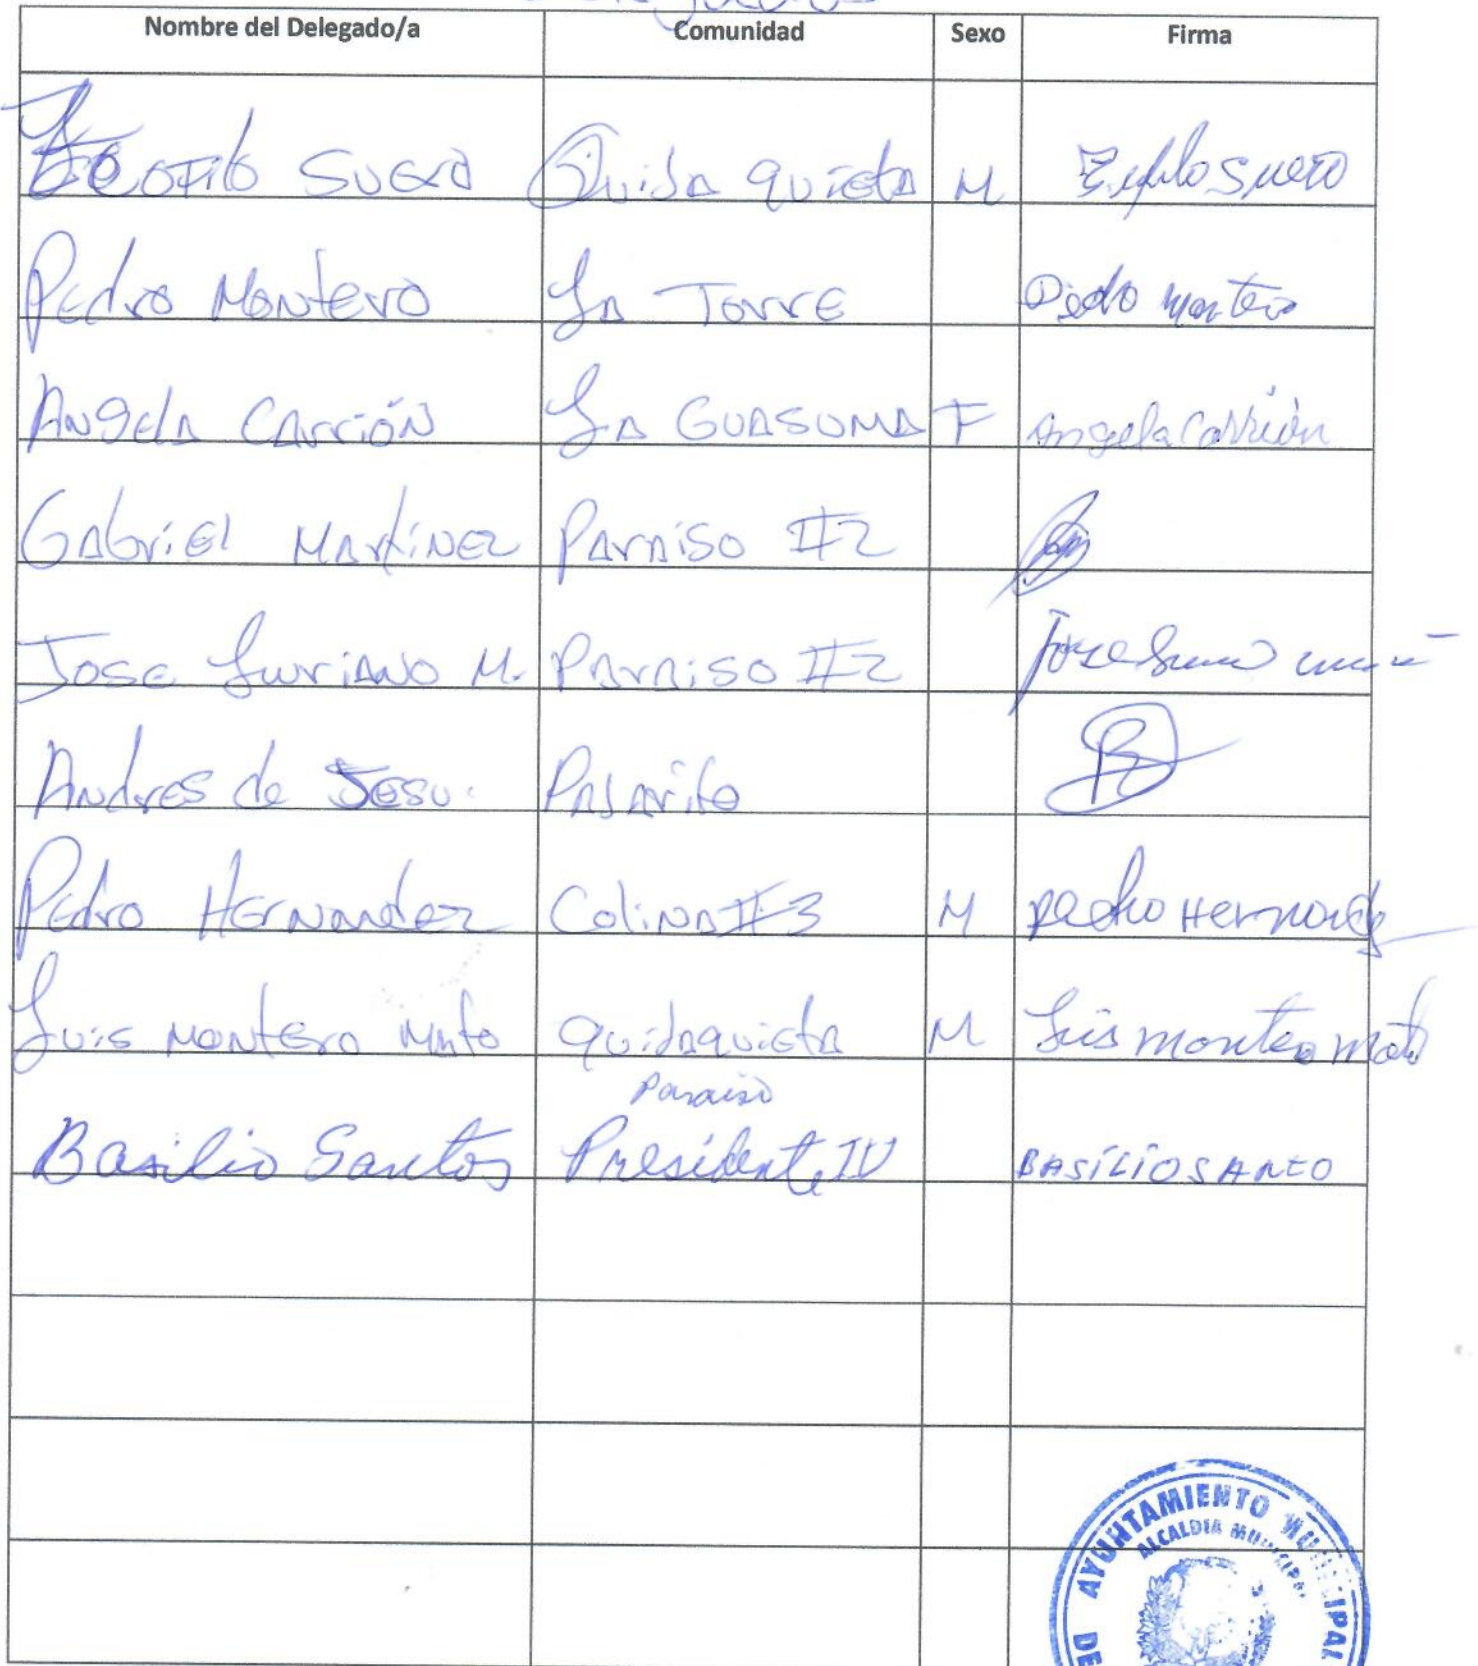 Nombre del Delegado/a Comunidad Sexo Firma
Teofilo Suero Quida quieta M Teofilo Suero
Pedro Montero La Torre Pedro Montero
Angela Carrión La Guasuma F Angela Carrión
Gabriel Martinez Paraiso #2
Jose Luriano M. Paraiso #2 Jose
Andres de Jesu. Pajarito
Pedro Hernandez Colina #3 M Pedro Hernandez
Luis Montero Mato Quidaquieta M Luis montero mato
Paraiso
Basilio Santos Presidente IV BASILIO SANTO
AYUNTAMIENTO MUNICIPAL
ALCALDIA MUNICIPAL
DE